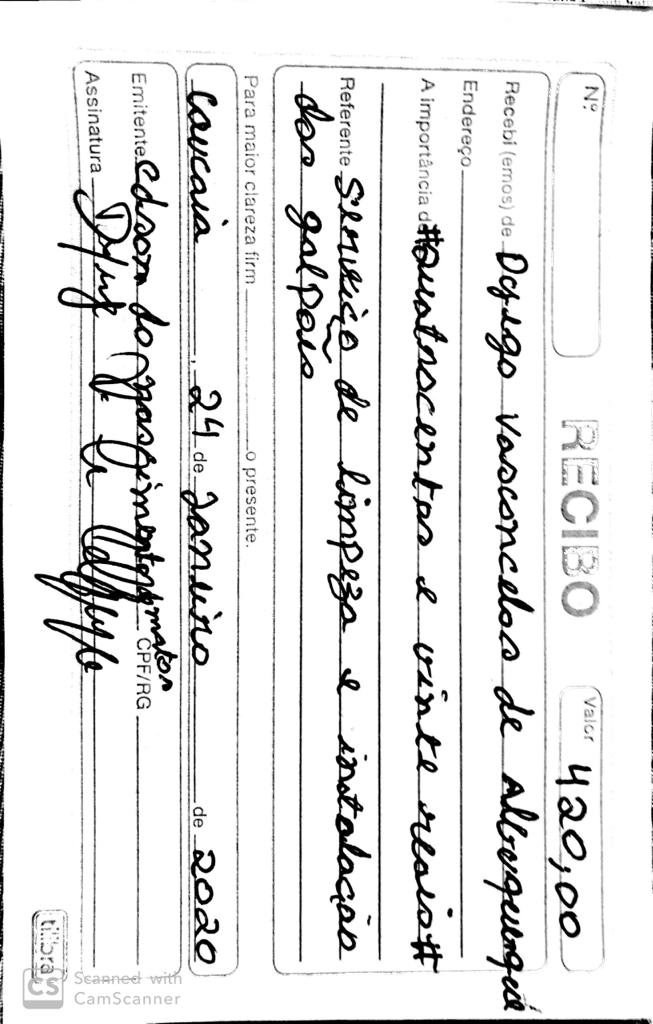 Nº
RECIBO
Valor 420,00
Recebi (emos) de Dyego Vasconcelos de Albuquerque
Endereço
A importância d #Quatrocentos e vinte reais#
Referente Serviço de limpeza e instalação
dos galpão
Para maior clareza firm o presente.
Caucaia, 24 de Janeiro de 2020
Emitente Edson do Nascimento matos CPF/RG
Assinatura
tilibra
CS Scanned with
CamScanner